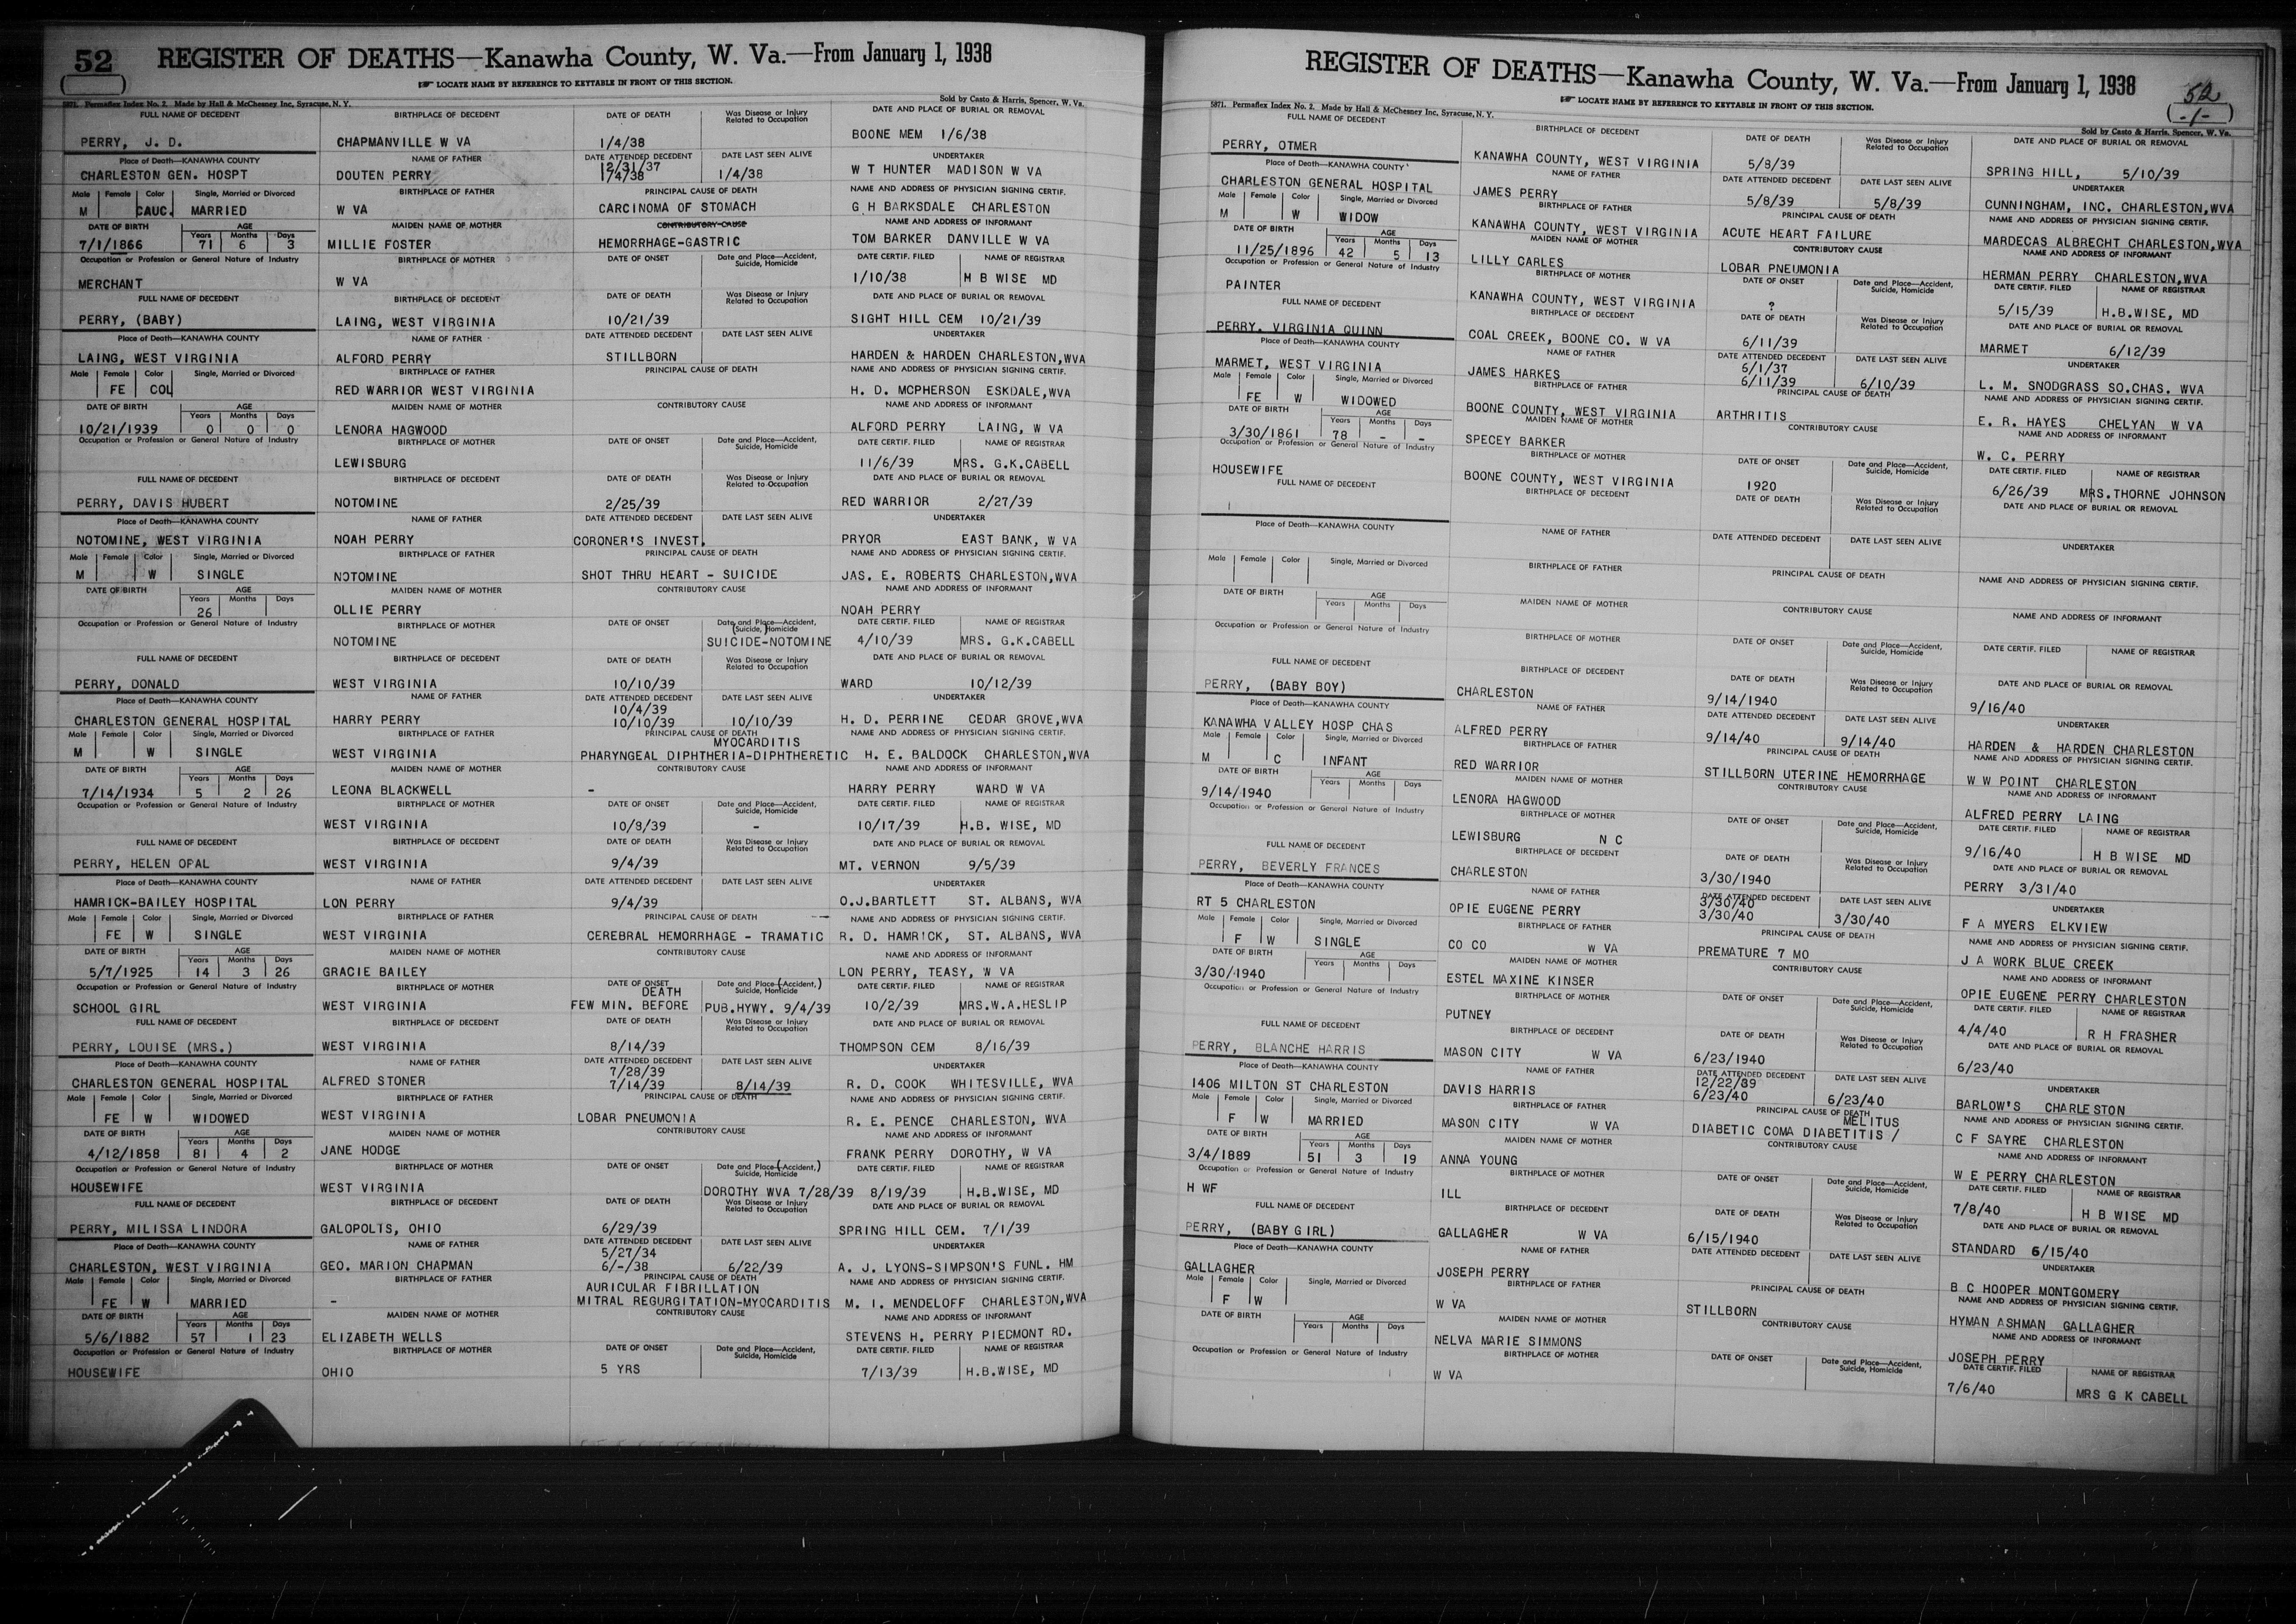 52
REGISTER OF DEATHS—Kanawha County, W. Va.—From January 1, 1938
☞ LOCATE NAME BY REFERENCE TO KEYTABLE IN FRONT OF THIS SECTION.
5871. Permaflex Index No. 2. Made by Hall & McChesney Inc, Syracuse, N. Y. Sold by Casto & Harris, Spencer, W. Va.
FULL NAME OF DECEDENT BIRTHPLACE OF DECEDENT DATE OF DEATH Was Disease or Injury Related to Occupation DATE AND PLACE OF BURIAL OR REMOVAL
PERRY, J. D. CHAPMANVILLE W VA 1/4/38 BOONE MEM 1/6/38
Place of Death—KANAWHA COUNTY NAME OF FATHER DATE ATTENDED DECEDENT DATE LAST SEEN ALIVE UNDERTAKER
12/31/37
CHARLESTON GEN. HOSPT DOUTEN PERRY 1/4/38 1/4/38 W T HUNTER MADISON W VA
Male Female Color Single, Married or Divorced BIRTHPLACE OF FATHER PRINCIPAL CAUSE OF DEATH NAME AND ADDRESS OF PHYSICIAN SIGNING CERTIF.
M CAUC. MARRIED W VA CARCINOMA OF STOMACH G H BARKSDALE CHARLESTON
DATE OF BIRTH AGE Years Months Days MAIDEN NAME OF MOTHER CONTRIBUTORY CAUSE NAME AND ADDRESS OF INFORMANT
7/1/1866 71 6 3 MILLIE FOSTER HEMORRHAGE-GASTRIC TOM BARKER DANVILLE W VA
Occupation or Profession or General Nature of Industry BIRTHPLACE OF MOTHER DATE OF ONSET Date and Place—Accident, Suicide, Homicide DATE CERTIF. FILED NAME OF REGISTRAR
MERCHANT W VA 1/10/38 H B WISE MD
FULL NAME OF DECEDENT BIRTHPLACE OF DECEDENT DATE OF DEATH Was Disease or Injury Related to Occupation DATE AND PLACE OF BURIAL OR REMOVAL
PERRY, (BABY) LAING, WEST VIRGINIA 10/21/39 SIGHT HILL CEM 10/21/39
Place of Death—KANAWHA COUNTY NAME OF FATHER DATE ATTENDED DECEDENT DATE LAST SEEN ALIVE UNDERTAKER
LAING, WEST VIRGINIA ALFORD PERRY STILLBORN HARDEN & HARDEN CHARLESTON,WVA
Male Female Color Single, Married or Divorced BIRTHPLACE OF FATHER PRINCIPAL CAUSE OF DEATH NAME AND ADDRESS OF PHYSICIAN SIGNING CERTIF.
FE COL RED WARRIOR WEST VIRGINIA H. D. MCPHERSON ESKDALE,WVA
DATE OF BIRTH AGE Years Months Days MAIDEN NAME OF MOTHER CONTRIBUTORY CAUSE NAME AND ADDRESS OF INFORMANT
10/21/1939 0 0 0 LENORA HAGWOOD ALFORD PERRY LAING, W VA
Occupation or Profession or General Nature of Industry BIRTHPLACE OF MOTHER DATE OF ONSET Date and Place—Accident, Suicide, Homicide DATE CERTIF. FILED NAME OF REGISTRAR
LEWISBURG 11/6/39 MRS. G.K.CABELL
FULL NAME OF DECEDENT BIRTHPLACE OF DECEDENT DATE OF DEATH Was Disease or Injury Related to Occupation DATE AND PLACE OF BURIAL OR REMOVAL
PERRY, DAVIS HUBERT NOTOMINE 2/25/39 RED WARRIOR 2/27/39
Place of Death—KANAWHA COUNTY NAME OF FATHER DATE ATTENDED DECEDENT DATE LAST SEEN ALIVE UNDERTAKER
NOTOMINE, WEST VIRGINIA NOAH PERRY CORONER'S INVEST. PRYOR EAST BANK, W VA
Male Female Color Single, Married or Divorced BIRTHPLACE OF FATHER PRINCIPAL CAUSE OF DEATH NAME AND ADDRESS OF PHYSICIAN SIGNING CERTIF.
M W SINGLE NOTOMINE SHOT THRU HEART - SUICIDE JAS. E. ROBERTS CHARLESTON,WVA
DATE OF BIRTH AGE Years Months Days MAIDEN NAME OF MOTHER CONTRIBUTORY CAUSE NAME AND ADDRESS OF INFORMANT
26 OLLIE PERRY NOAH PERRY
Occupation or Profession or General Nature of Industry BIRTHPLACE OF MOTHER DATE OF ONSET Date and Place—Accident, (Suicide,) Homicide DATE CERTIF. FILED NAME OF REGISTRAR
NOTOMINE SUICIDE-NOTOMINE 4/10/39 MRS. G.K.CABELL
FULL NAME OF DECEDENT BIRTHPLACE OF DECEDENT DATE OF DEATH Was Disease or Injury Related to Occupation DATE AND PLACE OF BURIAL OR REMOVAL
PERRY, DONALD WEST VIRGINIA 10/10/39 WARD 10/12/39
Place of Death—KANAWHA COUNTY NAME OF FATHER DATE ATTENDED DECEDENT DATE LAST SEEN ALIVE UNDERTAKER
10/4/39
CHARLESTON GENERAL HOSPITAL HARRY PERRY 10/10/39 10/10/39 H. D. PERRINE CEDAR GROVE,WVA
Male Female Color Single, Married or Divorced BIRTHPLACE OF FATHER PRINCIPAL CAUSE OF DEATH NAME AND ADDRESS OF PHYSICIAN SIGNING CERTIF.
MYOCARDITIS
M W SINGLE WEST VIRGINIA PHARYNGEAL DIPHTHERIA-DIPHTHERETIC H. E. BALDOCK CHARLESTON,WVA
DATE OF BIRTH AGE Years Months Days MAIDEN NAME OF MOTHER CONTRIBUTORY CAUSE NAME AND ADDRESS OF INFORMANT
7/14/1934 5 2 26 LEONA BLACKWELL - HARRY PERRY WARD W VA
Occupation or Profession or General Nature of Industry BIRTHPLACE OF MOTHER DATE OF ONSET Date and Place—Accident, Suicide, Homicide DATE CERTIF. FILED NAME OF REGISTRAR
WEST VIRGINIA 10/8/39 - 10/17/39 H.B. WISE, MD
FULL NAME OF DECEDENT BIRTHPLACE OF DECEDENT DATE OF DEATH Was Disease or Injury Related to Occupation DATE AND PLACE OF BURIAL OR REMOVAL
PERRY, HELEN OPAL WEST VIRGINIA 9/4/39 MT. VERNON 9/5/39
Place of Death—KANAWHA COUNTY NAME OF FATHER DATE ATTENDED DECEDENT DATE LAST SEEN ALIVE UNDERTAKER
HAMRICK-BAILEY HOSPITAL LON PERRY 9/4/39 O.J.BARTLETT ST. ALBANS, WVA
Male Female Color Single, Married or Divorced BIRTHPLACE OF FATHER PRINCIPAL CAUSE OF DEATH NAME AND ADDRESS OF PHYSICIAN SIGNING CERTIF.
FE W SINGLE WEST VIRGINIA CEREBRAL HEMORRHAGE - TRAMATIC R. D. HAMRICK, ST. ALBANS, WVA
DATE OF BIRTH AGE Years Months Days MAIDEN NAME OF MOTHER CONTRIBUTORY CAUSE NAME AND ADDRESS OF INFORMANT
5/7/1925 14 3 26 GRACIE BAILEY LON PERRY, TEASY, W VA
Occupation or Profession or General Nature of Industry BIRTHPLACE OF MOTHER DATE OF ONSET Date and Place—(Accident,) Suicide, Homicide DATE CERTIF. FILED NAME OF REGISTRAR
DEATH
SCHOOL GIRL WEST VIRGINIA FEW MIN. BEFORE PUB.HYWY. 9/4/39 10/2/39 MRS.W.A.HESLIP
FULL NAME OF DECEDENT BIRTHPLACE OF DECEDENT DATE OF DEATH Was Disease or Injury Related to Occupation DATE AND PLACE OF BURIAL OR REMOVAL
PERRY, LOUISE (MRS.) WEST VIRGINIA 8/14/39 THOMPSON CEM 8/16/39
Place of Death—KANAWHA COUNTY NAME OF FATHER DATE ATTENDED DECEDENT DATE LAST SEEN ALIVE UNDERTAKER
7/28/39
CHARLESTON GENERAL HOSPITAL ALFRED STONER 7/14/39 8/14/39 R. D. COOK WHITESVILLE, WVA
Male Female Color Single, Married or Divorced BIRTHPLACE OF FATHER PRINCIPAL CAUSE OF DEATH NAME AND ADDRESS OF PHYSICIAN SIGNING CERTIF.
FE W WIDOWED WEST VIRGINIA LOBAR PNEUMONIA R. E. PENCE CHARLESTON, WVA
DATE OF BIRTH AGE Years Months Days MAIDEN NAME OF MOTHER CONTRIBUTORY CAUSE NAME AND ADDRESS OF INFORMANT
4/12/1858 81 4 2 JANE HODGE FRANK PERRY DOROTHY, W VA
Occupation or Profession or General Nature of Industry BIRTHPLACE OF MOTHER DATE OF ONSET Date and Place—(Accident,) Suicide, Homicide DATE CERTIF. FILED NAME OF REGISTRAR
HOUSEWIFE WEST VIRGINIA DOROTHY WVA 7/28/39 8/19/39 H.B.WISE, MD
FULL NAME OF DECEDENT BIRTHPLACE OF DECEDENT DATE OF DEATH Was Disease or Injury Related to Occupation DATE AND PLACE OF BURIAL OR REMOVAL
PERRY, MILISSA LINDORA GALOPOLTS, OHIO 6/29/39 SPRING HILL CEM. 7/1/39
Place of Death—KANAWHA COUNTY NAME OF FATHER DATE ATTENDED DECEDENT DATE LAST SEEN ALIVE UNDERTAKER
5/27/34
CHARLESTON, WEST VIRGINIA GEO. MARION CHAPMAN 6/-/38 6/22/39 A. J. LYONS-SIMPSON'S FUNL. HM
Male Female Color Single, Married or Divorced BIRTHPLACE OF FATHER PRINCIPAL CAUSE OF DEATH NAME AND ADDRESS OF PHYSICIAN SIGNING CERTIF.
AURICULAR FIBRILLATION
FE W MARRIED - MITRAL REGURGITATION-MYOCARDITIS M. I. MENDELOFF CHARLESTON,WVA
DATE OF BIRTH AGE Years Months Days MAIDEN NAME OF MOTHER CONTRIBUTORY CAUSE NAME AND ADDRESS OF INFORMANT
5/6/1882 57 1 23 ELIZABETH WELLS STEVENS H. PERRY PIEDMONT RD.
Occupation or Profession or General Nature of Industry BIRTHPLACE OF MOTHER DATE OF ONSET Date and Place—Accident, Suicide, Homicide DATE CERTIF. FILED NAME OF REGISTRAR
HOUSEWIFE OHIO 5 YRS 7/13/39 H.B.WISE, MD
REGISTER OF DEATHS—Kanawha County, W. Va.—From January 1, 1938
52
-1-
☞ LOCATE NAME BY REFERENCE TO KEYTABLE IN FRONT OF THIS SECTION.
5871. Permaflex Index No. 2. Made by Hall & McChesney Inc, Syracuse, N. Y. Sold by Casto & Harris, Spencer, W. Va.
FULL NAME OF DECEDENT BIRTHPLACE OF DECEDENT DATE OF DEATH Was Disease or Injury Related to Occupation DATE AND PLACE OF BURIAL OR REMOVAL
PERRY, OTMER KANAWHA COUNTY, WEST VIRGINIA 5/8/39 SPRING HILL, 5/10/39
Place of Death—KANAWHA COUNTY NAME OF FATHER DATE ATTENDED DECEDENT DATE LAST SEEN ALIVE UNDERTAKER
CHARLESTON GENERAL HOSPITAL JAMES PERRY 5/8/39 5/8/39 CUNNINGHAM, INC. CHARLESTON,WVA
Male Female Color Single, Married or Divorced BIRTHPLACE OF FATHER PRINCIPAL CAUSE OF DEATH NAME AND ADDRESS OF PHYSICIAN SIGNING CERTIF.
M W WIDOW KANAWHA COUNTY, WEST VIRGINIA ACUTE HEART FAILURE MARDECAS ALBRECHT CHARLESTON,WVA
DATE OF BIRTH AGE Years Months Days MAIDEN NAME OF MOTHER CONTRIBUTORY CAUSE NAME AND ADDRESS OF INFORMANT
11/25/1896 42 5 13 LILLY CARLES LOBAR PNEUMONIA HERMAN PERRY CHARLESTON,WVA
Occupation or Profession or General Nature of Industry BIRTHPLACE OF MOTHER DATE OF ONSET Date and Place—Accident, Suicide, Homicide DATE CERTIF. FILED NAME OF REGISTRAR
PAINTER KANAWHA COUNTY, WEST VIRGINIA ? 5/15/39 H.B.WISE, MD
FULL NAME OF DECEDENT BIRTHPLACE OF DECEDENT DATE OF DEATH Was Disease or Injury Related to Occupation DATE AND PLACE OF BURIAL OR REMOVAL
PERRY, VIRGINIA QUINN COAL CREEK, BOONE CO. W VA 6/11/39 MARMET 6/12/39
Place of Death—KANAWHA COUNTY NAME OF FATHER DATE ATTENDED DECEDENT DATE LAST SEEN ALIVE UNDERTAKER
6/1/37
MARMET, WEST VIRGINIA JAMES HARKES 6/11/39 6/10/39 L. M. SNODGRASS SO.CHAS. WVA
Male Female Color Single, Married or Divorced BIRTHPLACE OF FATHER PRINCIPAL CAUSE OF DEATH NAME AND ADDRESS OF PHYSICIAN SIGNING CERTIF.
FE W WIDOWED BOONE COUNTY, WEST VIRGINIA ARTHRITIS E. R. HAYES CHELYAN W VA
DATE OF BIRTH AGE Years Months Days MAIDEN NAME OF MOTHER CONTRIBUTORY CAUSE NAME AND ADDRESS OF INFORMANT
3/30/1861 78 - - SPECEY BARKER W. C. PERRY
Occupation or Profession or General Nature of Industry BIRTHPLACE OF MOTHER DATE OF ONSET Date and Place—Accident, Suicide, Homicide DATE CERTIF. FILED NAME OF REGISTRAR
HOUSEWIFE BOONE COUNTY, WEST VIRGINIA 1920 6/26/39 MRS.THORNE JOHNSON
FULL NAME OF DECEDENT BIRTHPLACE OF DECEDENT DATE OF DEATH Was Disease or Injury Related to Occupation DATE AND PLACE OF BURIAL OR REMOVAL
Place of Death—KANAWHA COUNTY NAME OF FATHER DATE ATTENDED DECEDENT DATE LAST SEEN ALIVE UNDERTAKER
Male Female Color Single, Married or Divorced BIRTHPLACE OF FATHER PRINCIPAL CAUSE OF DEATH NAME AND ADDRESS OF PHYSICIAN SIGNING CERTIF.
DATE OF BIRTH AGE Years Months Days MAIDEN NAME OF MOTHER CONTRIBUTORY CAUSE NAME AND ADDRESS OF INFORMANT
Occupation or Profession or General Nature of Industry BIRTHPLACE OF MOTHER DATE OF ONSET Date and Place—Accident, Suicide, Homicide DATE CERTIF. FILED NAME OF REGISTRAR
FULL NAME OF DECEDENT BIRTHPLACE OF DECEDENT DATE OF DEATH Was Disease or Injury Related to Occupation DATE AND PLACE OF BURIAL OR REMOVAL
PERRY, (BABY BOY) CHARLESTON 9/14/1940 9/16/40
Place of Death—KANAWHA COUNTY NAME OF FATHER DATE ATTENDED DECEDENT DATE LAST SEEN ALIVE UNDERTAKER
KANAWHA VALLEY HOSP CHAS ALFRED PERRY 9/14/40 9/14/40 HARDEN & HARDEN CHARLESTON
Male Female Color Single, Married or Divorced BIRTHPLACE OF FATHER PRINCIPAL CAUSE OF DEATH NAME AND ADDRESS OF PHYSICIAN SIGNING CERTIF.
M C INFANT RED WARRIOR STILLBORN UTERINE HEMORRHAGE W W POINT CHARLESTON
DATE OF BIRTH AGE Years Months Days MAIDEN NAME OF MOTHER CONTRIBUTORY CAUSE NAME AND ADDRESS OF INFORMANT
9/14/1940 LENORA HAGWOOD ALFRED PERRY LAING
Occupation or Profession or General Nature of Industry BIRTHPLACE OF MOTHER DATE OF ONSET Date and Place—Accident, Suicide, Homicide DATE CERTIF. FILED NAME OF REGISTRAR
LEWISBURG N C 9/16/40 H B WISE MD
FULL NAME OF DECEDENT BIRTHPLACE OF DECEDENT DATE OF DEATH Was Disease or Injury Related to Occupation DATE AND PLACE OF BURIAL OR REMOVAL
PERRY, BEVERLY FRANCES CHARLESTON 3/30/1940 PERRY 3/31/40
Place of Death—KANAWHA COUNTY NAME OF FATHER DATE ATTENDED DECEDENT DATE LAST SEEN ALIVE UNDERTAKER
3/30/40
RT 5 CHARLESTON OPIE EUGENE PERRY 3/30/40 3/30/40 F A MYERS ELKVIEW
Male Female Color Single, Married or Divorced BIRTHPLACE OF FATHER PRINCIPAL CAUSE OF DEATH NAME AND ADDRESS OF PHYSICIAN SIGNING CERTIF.
F W SINGLE CO CO W VA PREMATURE 7 MO J A WORK BLUE CREEK
DATE OF BIRTH AGE Years Months Days MAIDEN NAME OF MOTHER CONTRIBUTORY CAUSE NAME AND ADDRESS OF INFORMANT
3/30/1940 ESTEL MAXINE KINSER OPIE EUGENE PERRY CHARLESTON
Occupation or Profession or General Nature of Industry BIRTHPLACE OF MOTHER DATE OF ONSET Date and Place—Accident, Suicide, Homicide DATE CERTIF. FILED NAME OF REGISTRAR
PUTNEY 4/4/40 R H FRASHER
FULL NAME OF DECEDENT BIRTHPLACE OF DECEDENT DATE OF DEATH Was Disease or Injury Related to Occupation DATE AND PLACE OF BURIAL OR REMOVAL
PERRY, BLANCHE HARRIS MASON CITY W VA 6/23/1940 6/23/40
Place of Death—KANAWHA COUNTY NAME OF FATHER DATE ATTENDED DECEDENT DATE LAST SEEN ALIVE UNDERTAKER
12/22/39
1406 MILTON ST CHARLESTON DAVIS HARRIS 6/23/40 6/23/40 BARLOW'S CHARLESTON
Male Female Color Single, Married or Divorced BIRTHPLACE OF FATHER PRINCIPAL CAUSE OF DEATH NAME AND ADDRESS OF PHYSICIAN SIGNING CERTIF.
MELITUS
F W MARRIED MASON CITY W VA DIABETIC COMA DIABETITIS / C F SAYRE CHARLESTON
DATE OF BIRTH AGE Years Months Days MAIDEN NAME OF MOTHER CONTRIBUTORY CAUSE NAME AND ADDRESS OF INFORMANT
3/4/1889 51 3 19 ANNA YOUNG W E PERRY CHARLESTON
Occupation or Profession or General Nature of Industry BIRTHPLACE OF MOTHER DATE OF ONSET Date and Place—Accident, Suicide, Homicide DATE CERTIF. FILED NAME OF REGISTRAR
H WF ILL 7/8/40 H B WISE MD
FULL NAME OF DECEDENT BIRTHPLACE OF DECEDENT DATE OF DEATH Was Disease or Injury Related to Occupation DATE AND PLACE OF BURIAL OR REMOVAL
PERRY, (BABY GIRL) GALLAGHER W VA 6/15/1940 STANDARD 6/15/40
Place of Death—KANAWHA COUNTY NAME OF FATHER DATE ATTENDED DECEDENT DATE LAST SEEN ALIVE UNDERTAKER
GALLAGHER JOSEPH PERRY B C HOOPER MONTGOMERY
Male Female Color Single, Married or Divorced BIRTHPLACE OF FATHER PRINCIPAL CAUSE OF DEATH NAME AND ADDRESS OF PHYSICIAN SIGNING CERTIF.
F W W VA STILLBORN HYMAN ASHMAN GALLAGHER
DATE OF BIRTH AGE Years Months Days MAIDEN NAME OF MOTHER CONTRIBUTORY CAUSE NAME AND ADDRESS OF INFORMANT
NELVA MARIE SIMMONS JOSEPH PERRY
Occupation or Profession or General Nature of Industry BIRTHPLACE OF MOTHER DATE OF ONSET Date and Place—Accident, Suicide, Homicide DATE CERTIF. FILED NAME OF REGISTRAR
W VA 7/6/40 MRS G K CABELL